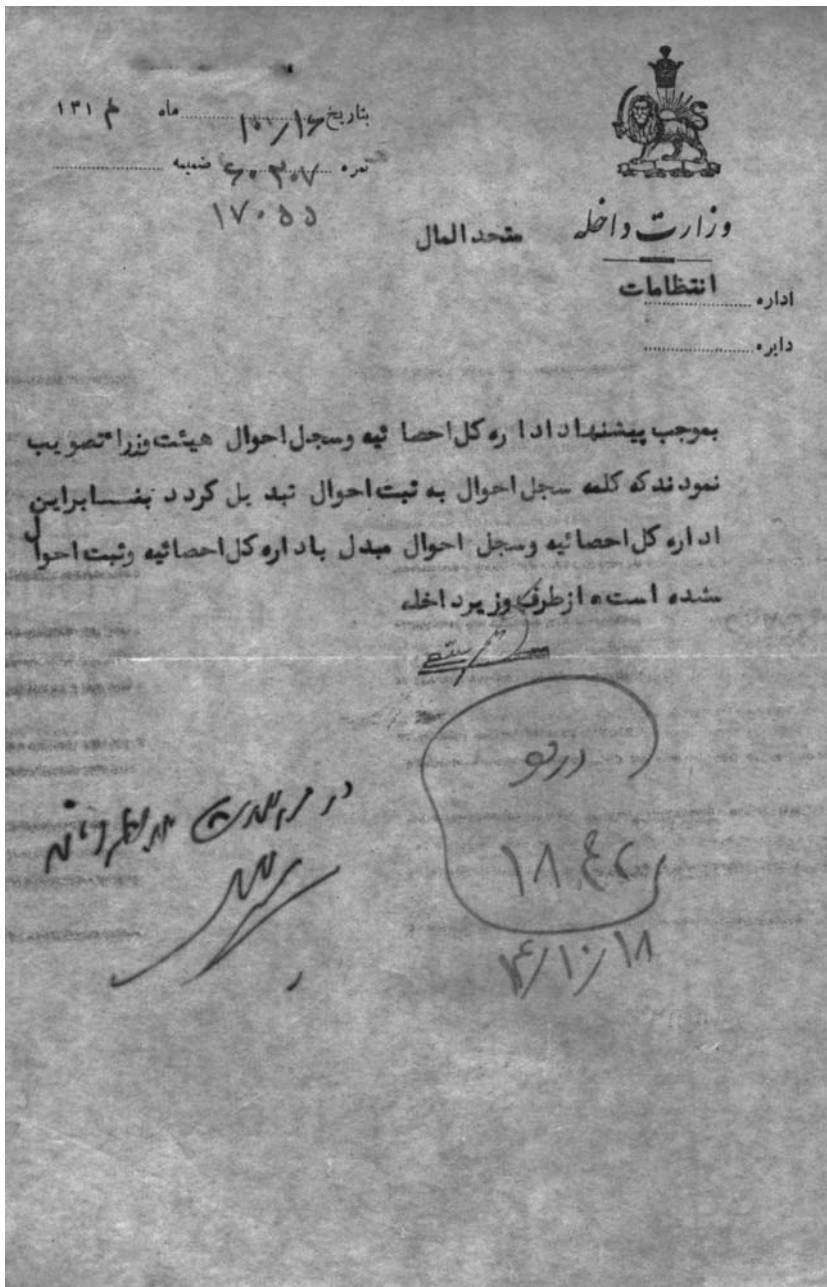 بتاریخ ۱۰/۱۶ ماه ۱۳۱۴
نمره ۶۰۳۰۷ ضمیمه
۱۷۰۵۵
وزارت داخله
متحدالمال
اداره انتظامات
دایره
بموجب پیشنهاد اداره کل احصائیه وسجل احوال هیئت وزراء تصویب
نمودندکه کلمه سجل احوال به ثبت احوال تبدیل کردد بنابراین
اداره کل احصائیه وسجل احوال مبدل باداره کل احصائیه وثبت احوال
شده است، ازطرف وزیرداخله
۱۴/۱۰/۱۸